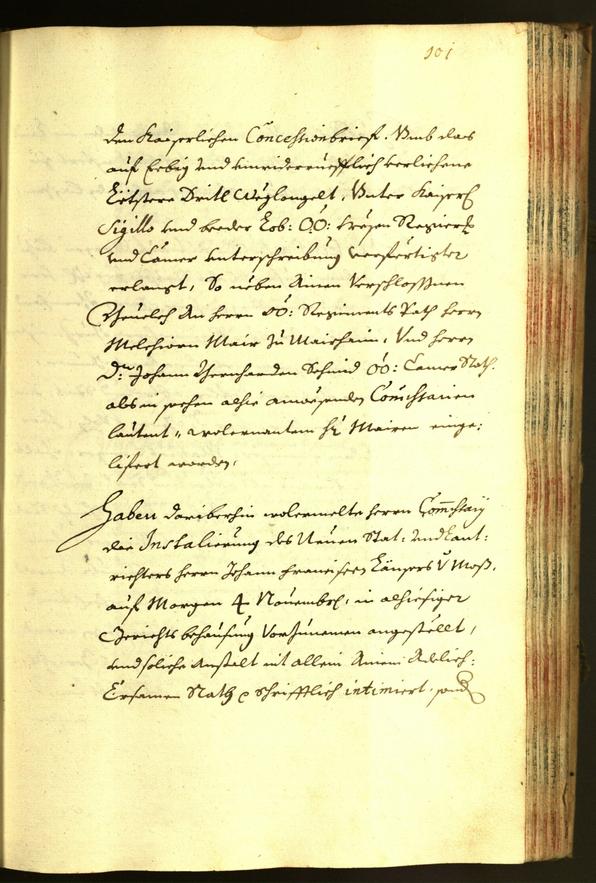 101
den Kaiserlichen Concessionbrief. Umb das
auf Ewig und unwiderrueflich verlichene
Lätstere Dritl Weglongelt, Unter Kaiserl
Sigillo und beeder Lob: OÖ: wesen Regier:
und Camer unterschreibung verfertigter
erlangt, So neben Ainen Verschlossnen
An Herrn OÖ: Regiments Rath Herrn
Melchiorn Mair zu Mairhaim, Und Herrn
Dn. Johann Bernharden Schmid OÖ: Camer Rath.
als in sachen alhie anwesenden Comissarien
lautent, wolernantem H: Mairn einge:
lifert worden.
Haben dariberhin wolermelte Herrn Comissarij
die Instalierung des Neuen Stat: und Lant:
richters Herrn Johann Francisen V Moß.
auf Morgen 4 Novembr, in alhiesiger
Gerichts behausung Vorzunemen angestellt,
und soliche Anstalt mit allein Ainem Adelich:
Ersamen Rath schrifftlich intimiert, sond